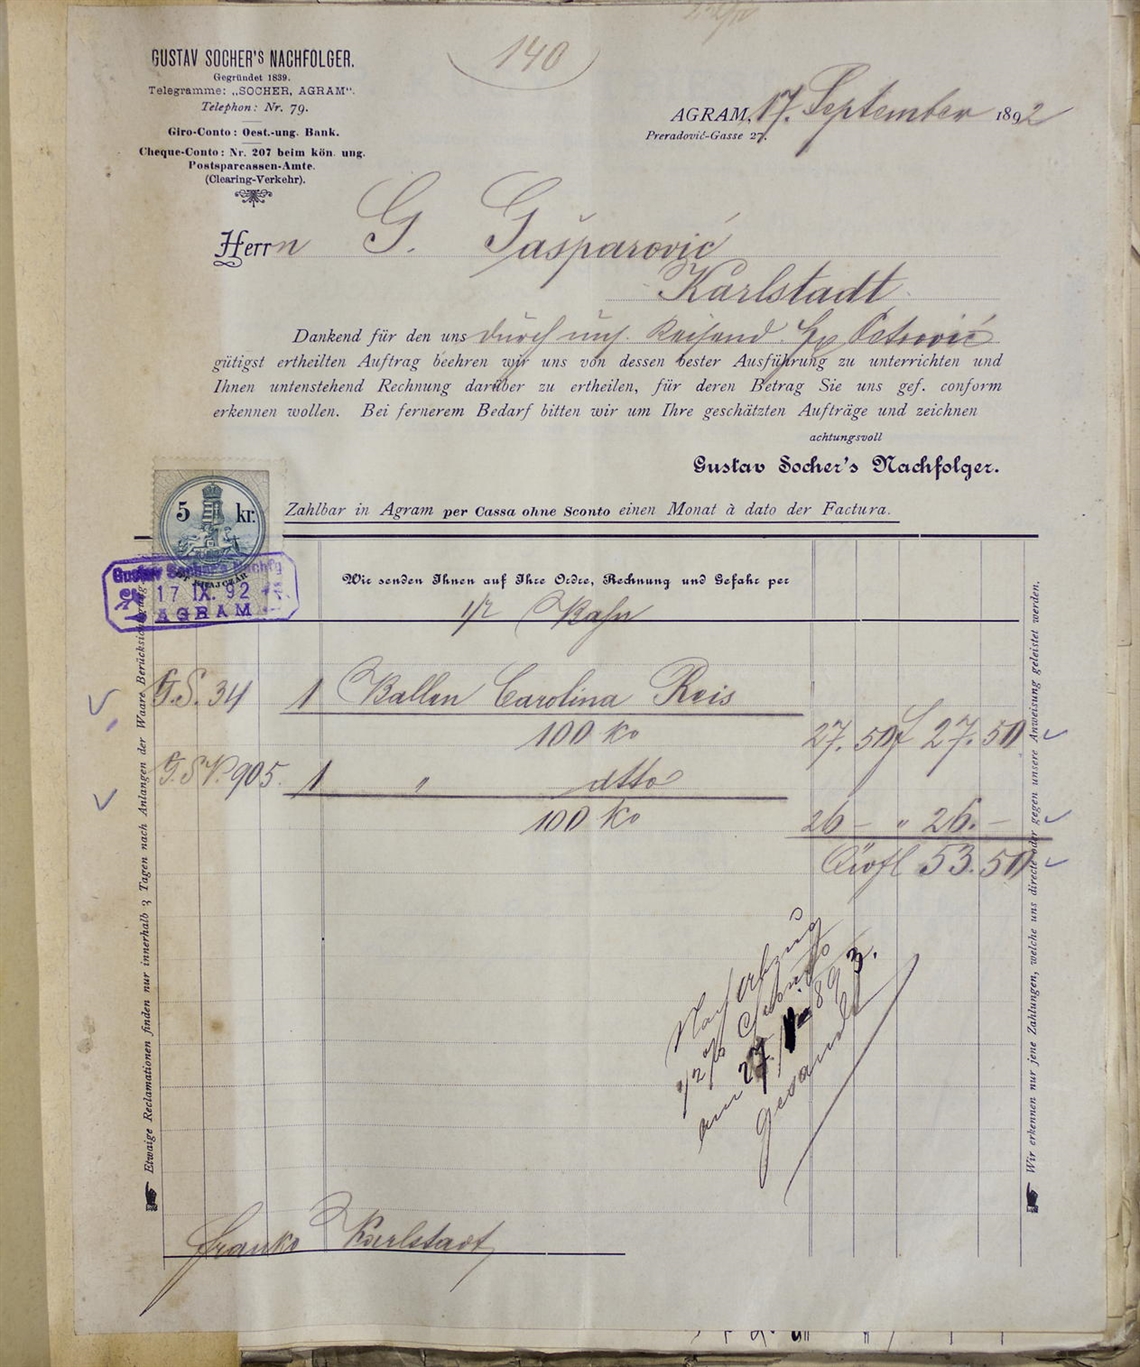 140
GUSTAV SOCHER'S NACHFOLGER.
Gegründet 1839.
Telegramme: „SOCHER, AGRAM".
Telephon: Nr. 79.
Giro-Conto: Oest.-ung. Bank.
Cheque-Conto: Nr. 207 beim kön. ung.
Postsparcassen-Amte.
(Clearing-Verkehr).
AGRAM, 17. September 1892
Preradović-Gasse 27.
Herrn G. Gašparović
Karlstadt
Dankend für den uns durch uns. Reisend. Petrović
gütigst ertheilten Auftrag beehren wir uns von dessen bester Ausführung zu unterrichten und
Ihnen untenstehend Rechnung darüber zu ertheilen, für deren Betrag Sie uns gef. conform
erkennen wollen. Bei fernerem Bedarf bitten wir um Ihre geschätzten Aufträge und zeichnen
achtungsvoll
Gustav Socher's Nachfolger.
5 kr.
Zahlbar in Agram per Cassa ohne Sconto einen Monat à dato der Factura.
Gustav Socher's Nachfg
17 IX. 92
AGRAM
Wir senden Ihnen auf Ihre Ordre, Rechnung und Gefahr per
Bahn
G.S. 34 1 Ballen Carolina Reis
100 Ko 27. 50 f 27. 50
905. 1 " dtto
100 Ko 26 – " 26. –
53. 50
Etwaige Reclamationen finden nur innerhalb 3 Tagen nach Anlangen der Waare Berücksichtigung.
Wir erkennen nur jene Zahlungen, welche uns directe oder gegen unsere Anweisung geleistet werden.
Abzug
2% Sconto
am 27. 893.
gesandt
franko Karlstadt